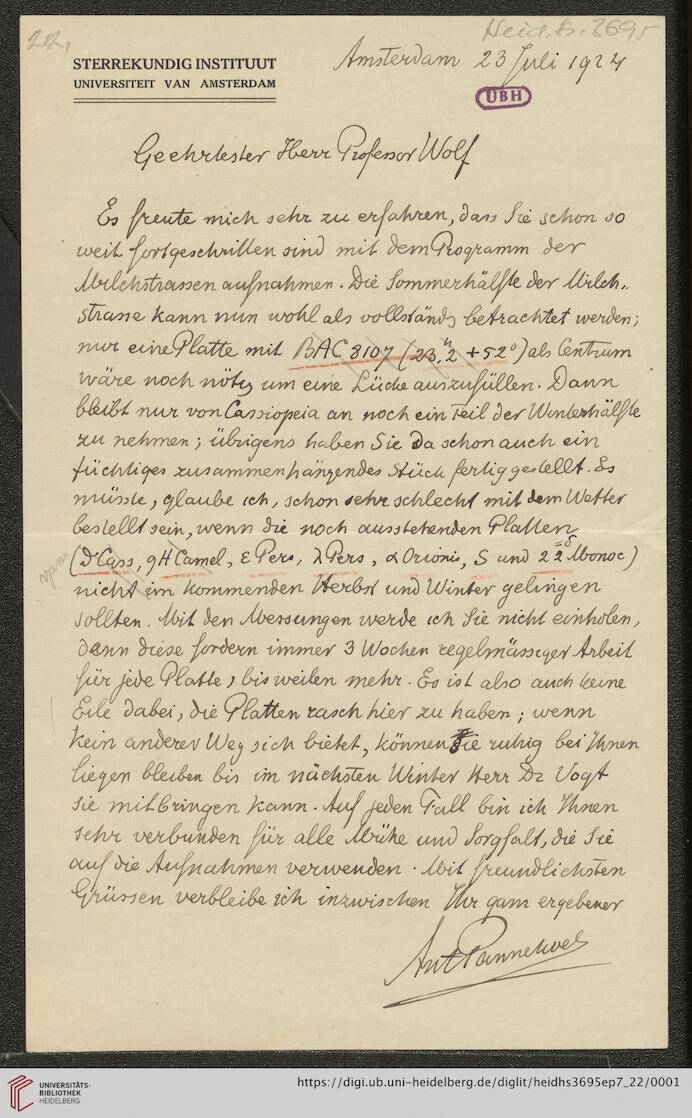 22,
Heid. Hs. 3695
STERREKUNDIG INSTITUUT
UNIVERSITEIT VAN AMSTERDAM
Amsterdam 23 Juli 1924
UBH
Geehrtester Herr Professor Wolf
Es freute mich sehr zu erfahren, dass Sie schon so
weit fortgeschritten sind mit dem Programm der
Milchstrassenaufnahmen. Die Sommerhälfte der Milch-
strasse kann nun wohl als vollständig betrachtet werden;
nur eine Platte mit BAC 8107 (23h,2 +52°) als Centrum
wäre noch nötig um eine Lücke auszufüllen. Dann
bleibt nur von Cassiopeia an noch ein Teil der Winterhälfte
zu nehmen; übrigens haben Sie da schon auch ein
tüchtiges zusammenhängendes Stück fertiggestellt. Es
müsste, glaube ich, schon sehr schlecht mit dem Wetter
bestellt sein, wenn die noch ausstehenden Platten
(δ Cass, 9H Camel, ε Pers, λ Pers, α Orionis, S und 22 = δ Monoc)
nicht im kommenden Herbst und Winter gelingen
sollten. Mit den Messungen werde ich Sie nicht einholen,
denn diese fordern immer 3 Wochen regelmässiger Arbeit
für jede Platte, bisweilen mehr. Es ist also auch keine
Eile dabei, die Platten rasch hier zu haben; wenn
kein anderer Weg sich bietet, können sie ruhig bei Ihnen
liegen bleiben bis im nächsten Winter Herr Dr Vogt
sie mitbringen kann. Auf jeden Fall bin ich Ihnen
sehr verbunden für alle Mühe und Sorgfalt, die Sie
auf die Aufnahmen verwenden. Mit freundlichsten
Grüssen verbleibe ich inzwischen Ihr ganz ergebener
Ant Pannekoek
UNIVERSITÄTS-
BIBLIOTHEK
HEIDELBERG
https://digi.ub.uni-heidelberg.de/diglit/heidhs3695ep7_22/0001